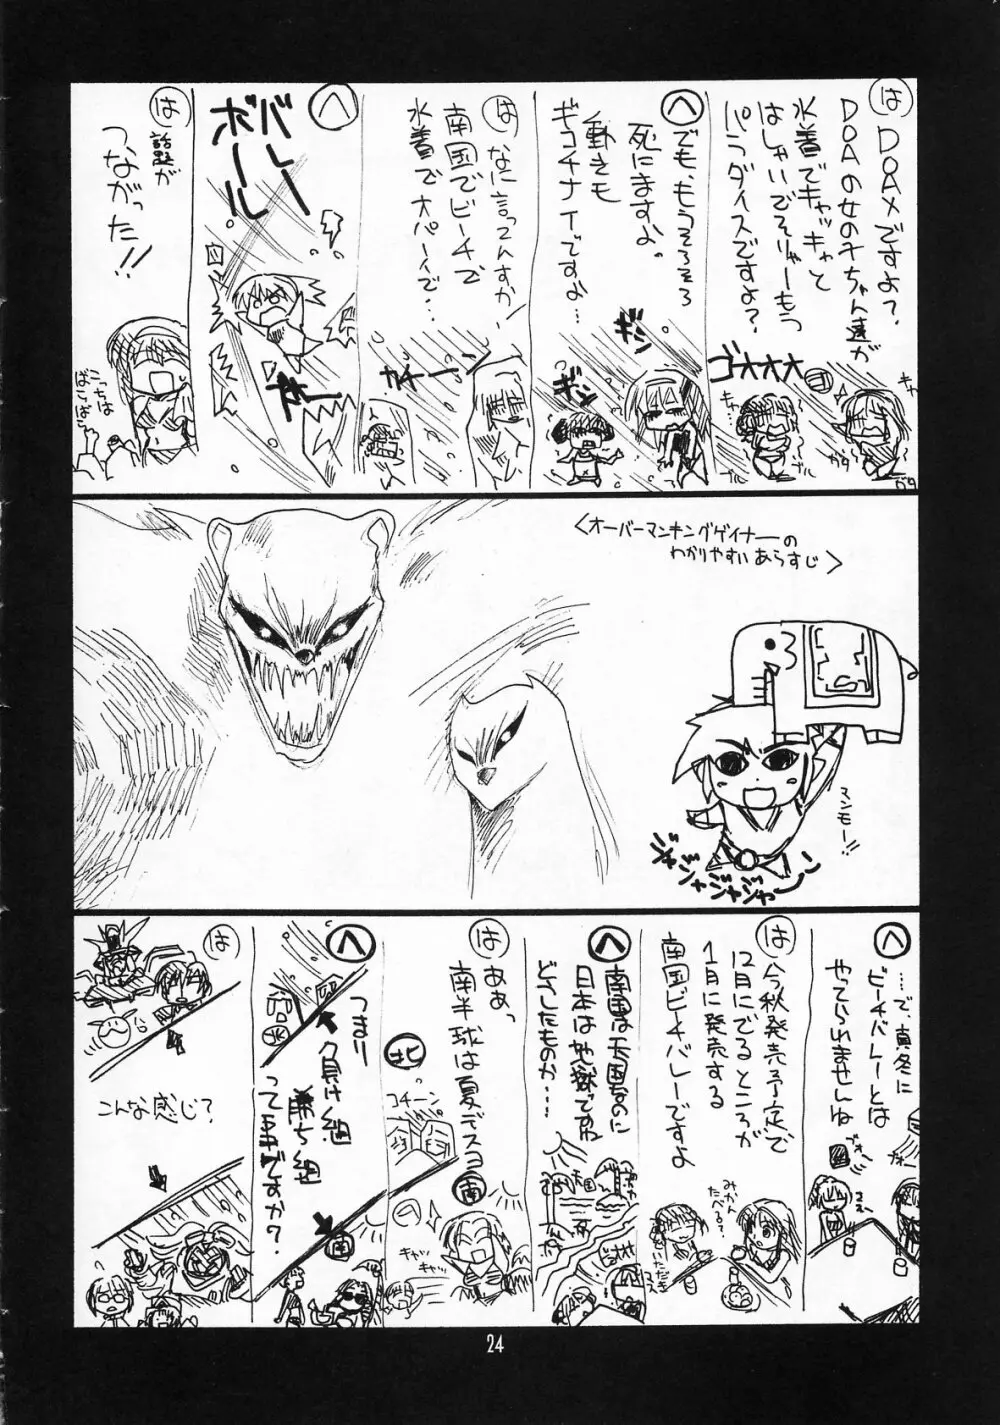 は
DOAXですよ？
DOAの女のチちゃん達が
水着でキャッキャと
はしゃいでそりゃーもう
パラダイスですよ？
ゴオオオ
キャ
キャ
ブル
ブル
ガタ
へ
でも、もうそろそろ
死にますよ。
動きも
ギコチナイですよ…
ギシ
ギシ
は
なに言ってんすか!
南国でビーチで
水着で大パーイで…
カチーン
へ
バレー
ボール
は
話題が
つながった!!
こっちは
<オーバーマンキングゲイナーの
わかりやすいあらすじ>
マンモー!!
ジャジャジャジャーン
へ
…で、真冬に
ビーチバレーとは
やってられませんね
は
今秋発売予定で
12月にでるところが
1月に発売する
南国ビーチバレーですよ
みかん
たべる?
いただき
マス
へ
南国は天国なのに
日本は地獄ですね
どうしたものか…
は
ああっ
南半球は夏デスヨ
北
コチーン
南
キャッ
キャッ
へ
つまり
負け組
勝ち組
って事ですか?
北
南
は
こんな感じ?
24